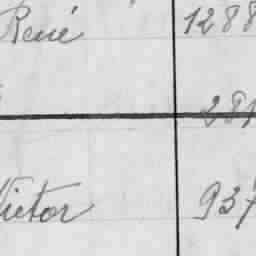 René 1288
Victor 937